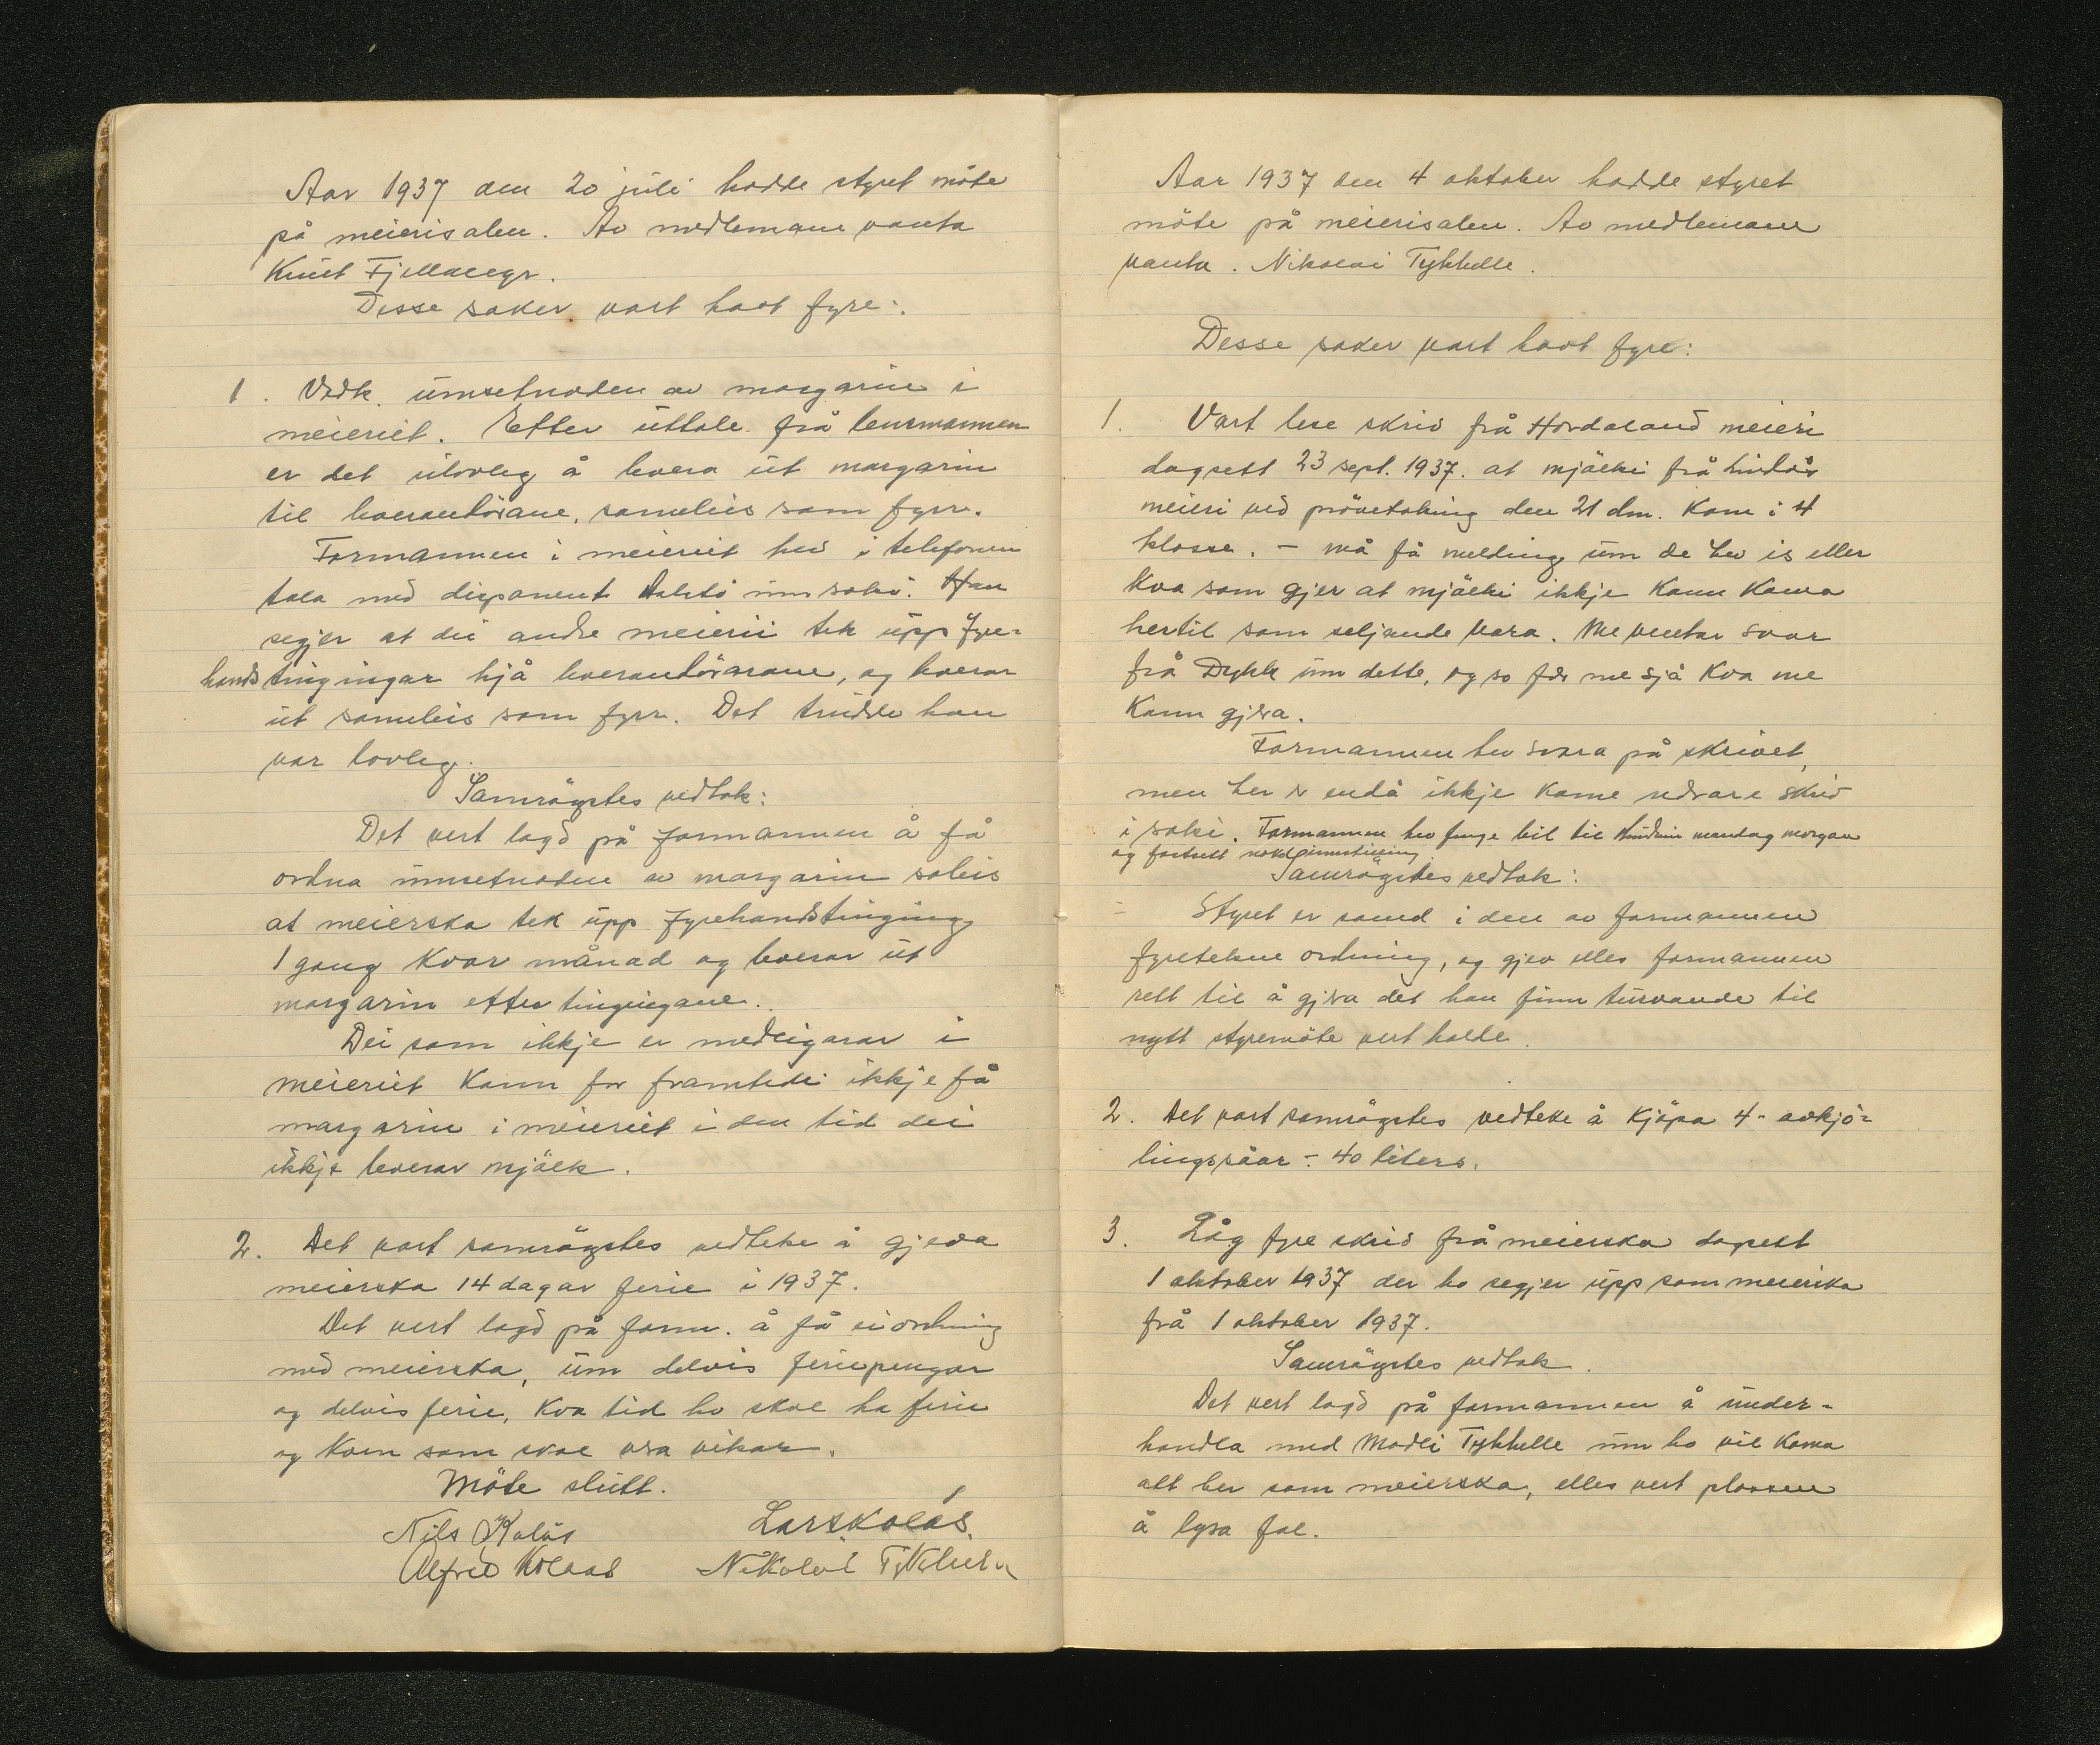 Aar 1937 den 20 juli hadde styret möte
på meierisalen. Av medlemane vanta
Knut Fjellanger.
Desse saker vart havt fyre:
1. Vedk. umsetnaden av margarin i
meieriet. Etter uttale frå lensmannen
er det ulovleg å levera ut margarin
til leverandörane, sameleis som fyrr.
Formannen i meieriet hev i telefonen
tala med disponent um saki. Han
segjer at dei andre meierii tek upp fyre-
hands tingingar hjå leverandörarane, og leverar
ut sameleis som fyrr. Det trudde han
var lovleg.
Samrøystes vedtak:
Det vert lagd på formannen å få
ordna umsetnaden av margarin soleis
at meierska tek upp fyrehandstinging
1 gong kvar månad og leverar ut
margarin etter tingingane.
Dei som ikkje er medeigarar i
meieriet kann for framtidi ikkje få
margarin i meieriet i den tid dei
ikkje leverar mjölk.
2. Det vart samröystes vedteke å gjeva
meierska 14 dagar ferie i 1937.
Det vert lagd på form. å få ei ordning
med meierska, um delvis feriepengar
og delvis ferie, kva tid ho skal ha ferie
og kven som skal vra vikar.
Möte slutt.
Nils Kolås Lars Kolås.
Alfred Kolaas Nikolai Tykkhelle
Aar 1937 den 4 oktober hadde styret
möte på meierisalen. Av medlemane
vanta. Nikolai Tykkhelle.
Desse saker vart havt fyre:
1. Vart lese skriv frå Hordaland meieri
dagsett 23 sept. 1937. at mjölki frå Lindås
meieri ved prövetaking den 21 dm. kom i 4
klasse. - må få melding um de hev is eller
kva som gjer at mjölki ikkje kann koma
hertil som seljande vara. Me ventar svar
frå Dykk um dette, og so får me sjå kva me
kann gjera.
Formannen hev svara på skrivet,
men her er endå ikkje kome nokre skriv
i saki. Formannen hev fenge bil til mandag morgon
og fortsett
Samröystes vedtak:
Styret er samd i den av formannen
fyretekne ordning, og gjev elles formannen
rett til å gjera det han finn turvande til
nytt styremöte vert halde.
2. Det vart samröystes vedteke å kjöpa 4- avkjö-
lingsspann - 40 liters.
3. Låg fyre skriv frå meierska dagsett
1 oktober 1937 der ho segjer upp som meierska
frå 1 oktober 1937.
Samröystes vedtak.
Det vert lagd på formannen å under-
handla med Madli Tykkhelle um ho vil koma
att her som meierska, elles vert plassen
å lysa fal.